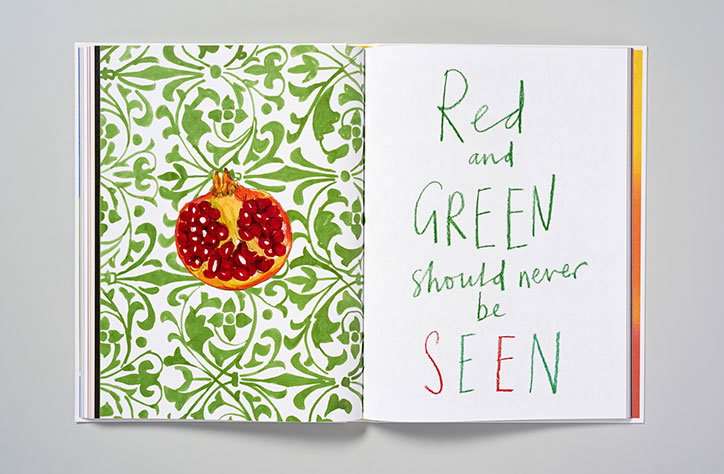 Red
and
GREEN
should never
be
SEEN